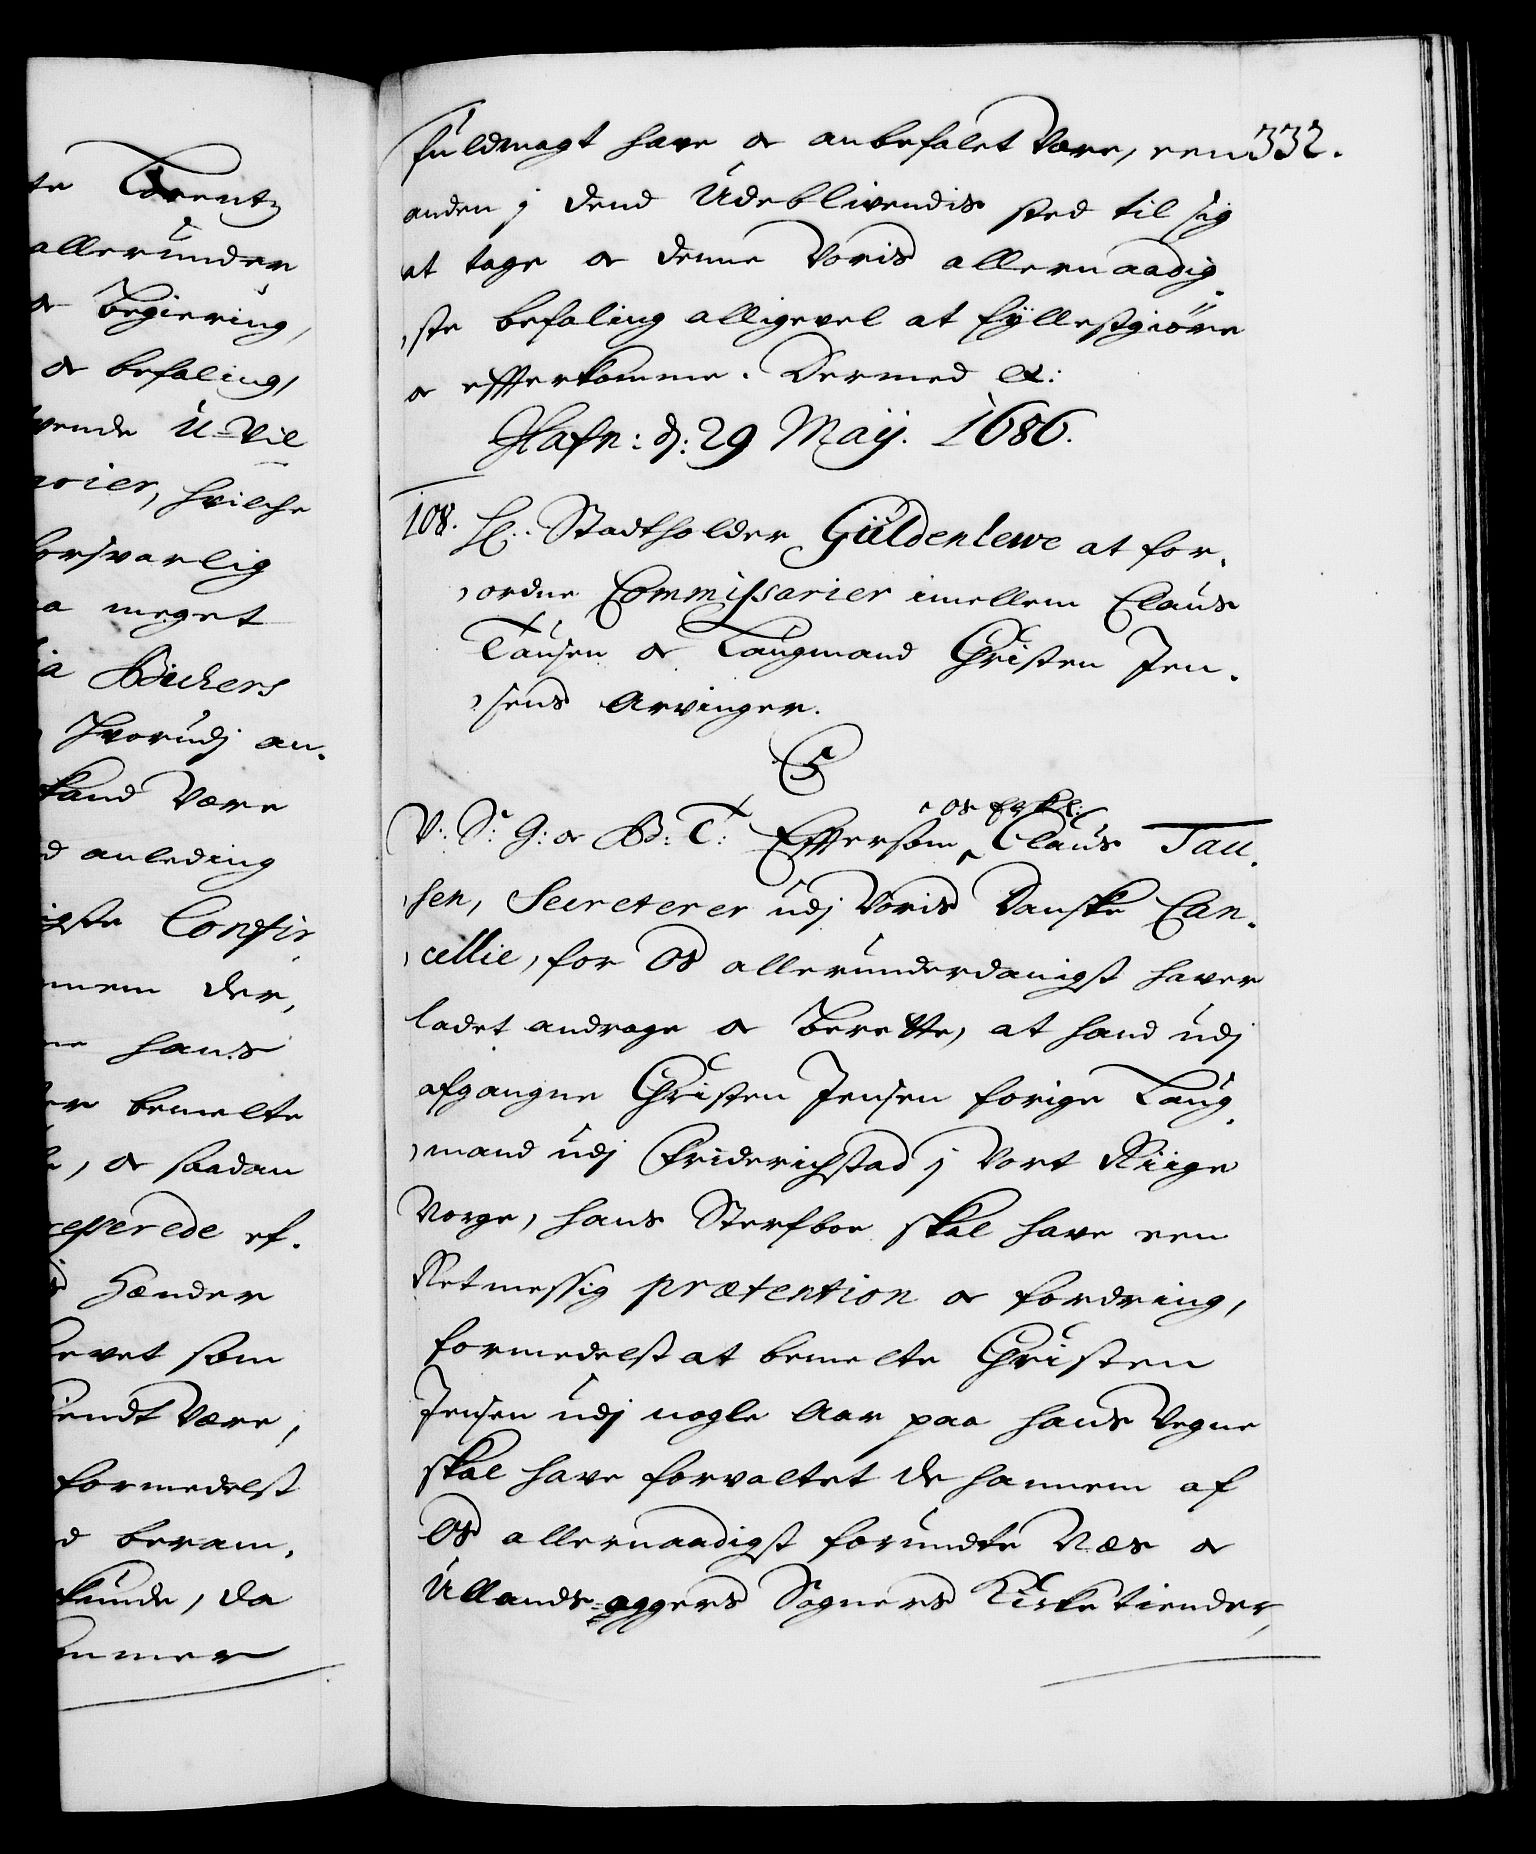 te Lorentz
allerunder
or Begiering,
or befaling,
vende U=Vil
rier, hvilche
forsvarlig
a meget
ia Bickers
hvorudj an.
kand Være
d anleding
igste Confir
nem der,
hans
er bemelte
, or saadan
cepterede ef.
Hænder
revet som
kiendt Være,
formedelst
d beram,
kunde, da
ommer
fuldmagt have or anbefalet Være, een 332.
anden j dend Udeblivendis sted til sig
at tage or denne Voris allernaadig.
,ste befaling alligevel at fÿllestgiöre
or effterkomme. Dermed etc:
Hafn: d: 29 Maÿ. 1686.
108. H: Stadtholder Güldenlewe at for.
,ordne Commissarier imellem Claus
Tausen or Laugmand Christen Jen.
,sens Arvinger.
C5
V: S: G: or B: T: Efftersom ^ or Ers Kl: Claus Tau.
,sen, Secreterer udj Voris Danske Can.
,cellie, for Os allerunderdanigst haver
ladet andrage or berette, at hand udj
afgangne Christen Jensen forige Laug.
,mand udj Friderichstad j Vort Riige
Norge, hans Sterfboe skal have een
Retmessig prætention or fordring,
formedelst at bemelte Christen
Jensen udj nogle Aar paa hans Vegne
skal have forvaltet de hannem af
Os allernaadigst forundte Næs or
Ullands=aggers Sogners Kirketiender,